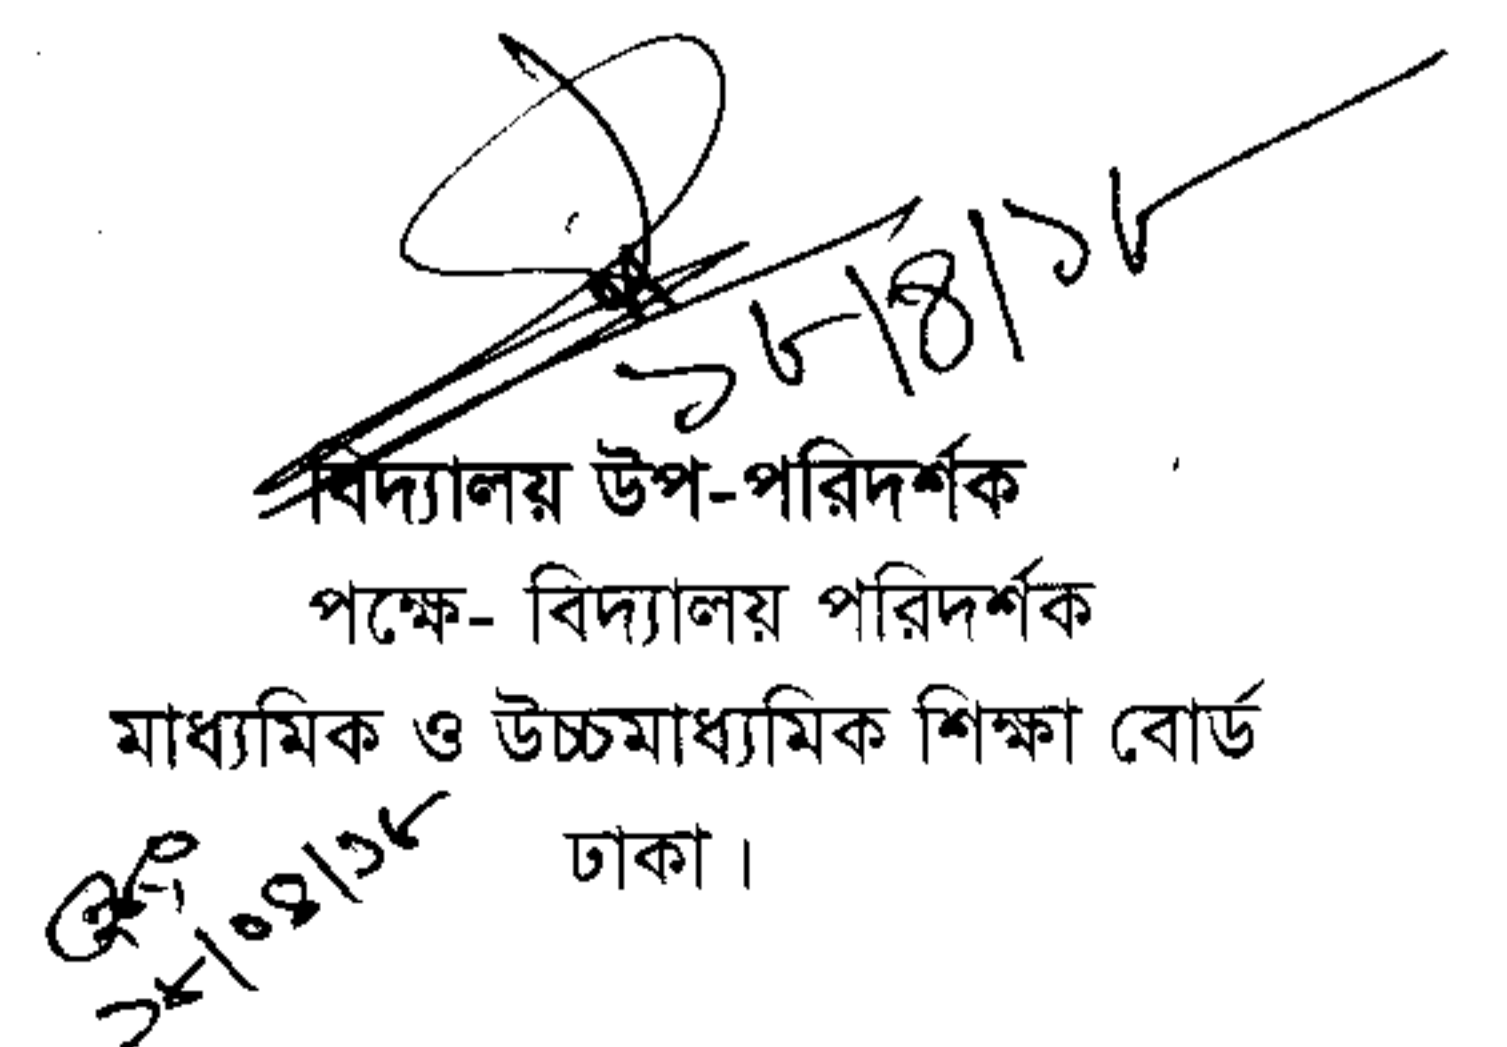 ১৮/৪/১৮
বিদ্যালয় উপ-পরিদর্শক
পক্ষে- বিদ্যালয় পরিদর্শক
মাধ্যমিক ও উচ্চমাধ্যমিক শিক্ষা বোর্ড
ঢাকা।
১৮/০৪/১৮